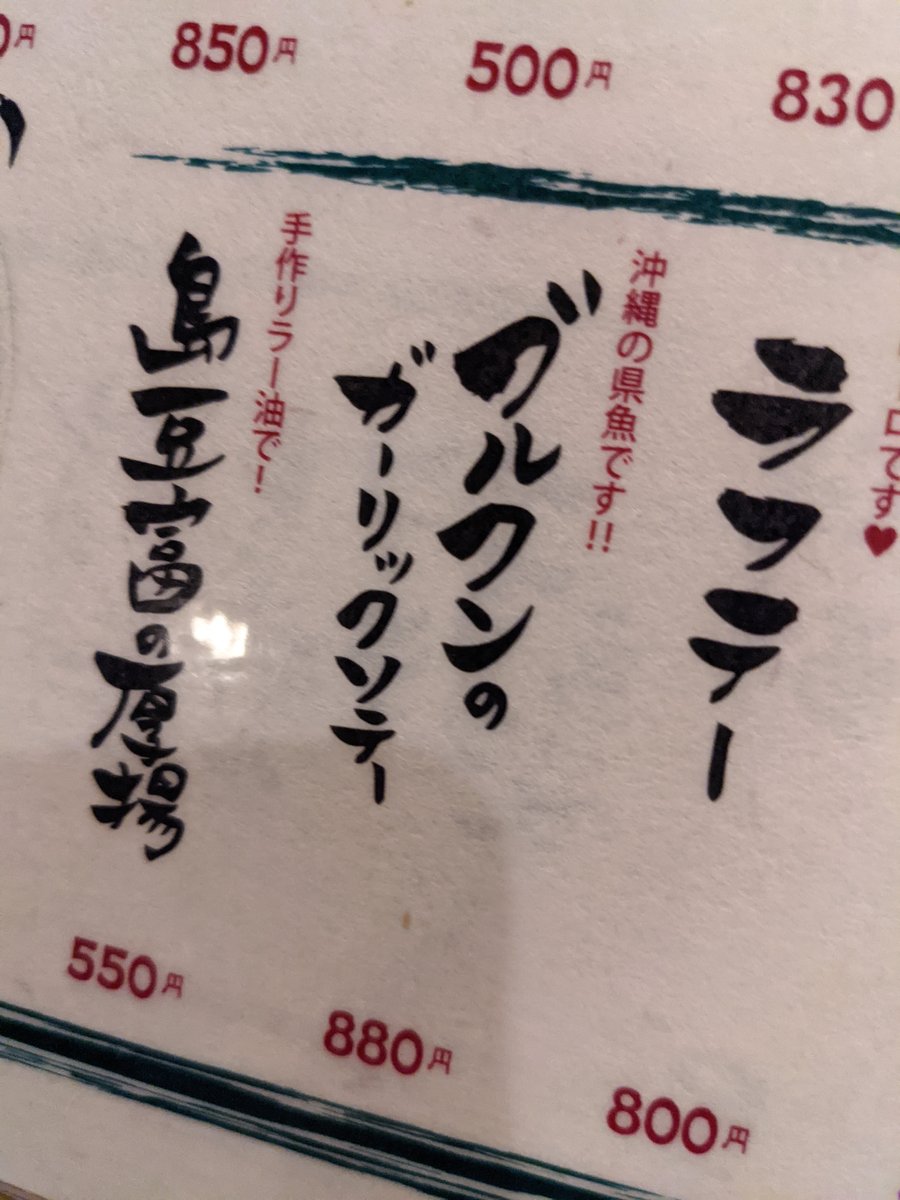 830
500円
850円
0円
です♥
ラフテー
800円
沖縄の県魚です!!
グルクンの
ガーリックソテー
880円
手作りラー油で!
島豆富の厚揚
550円